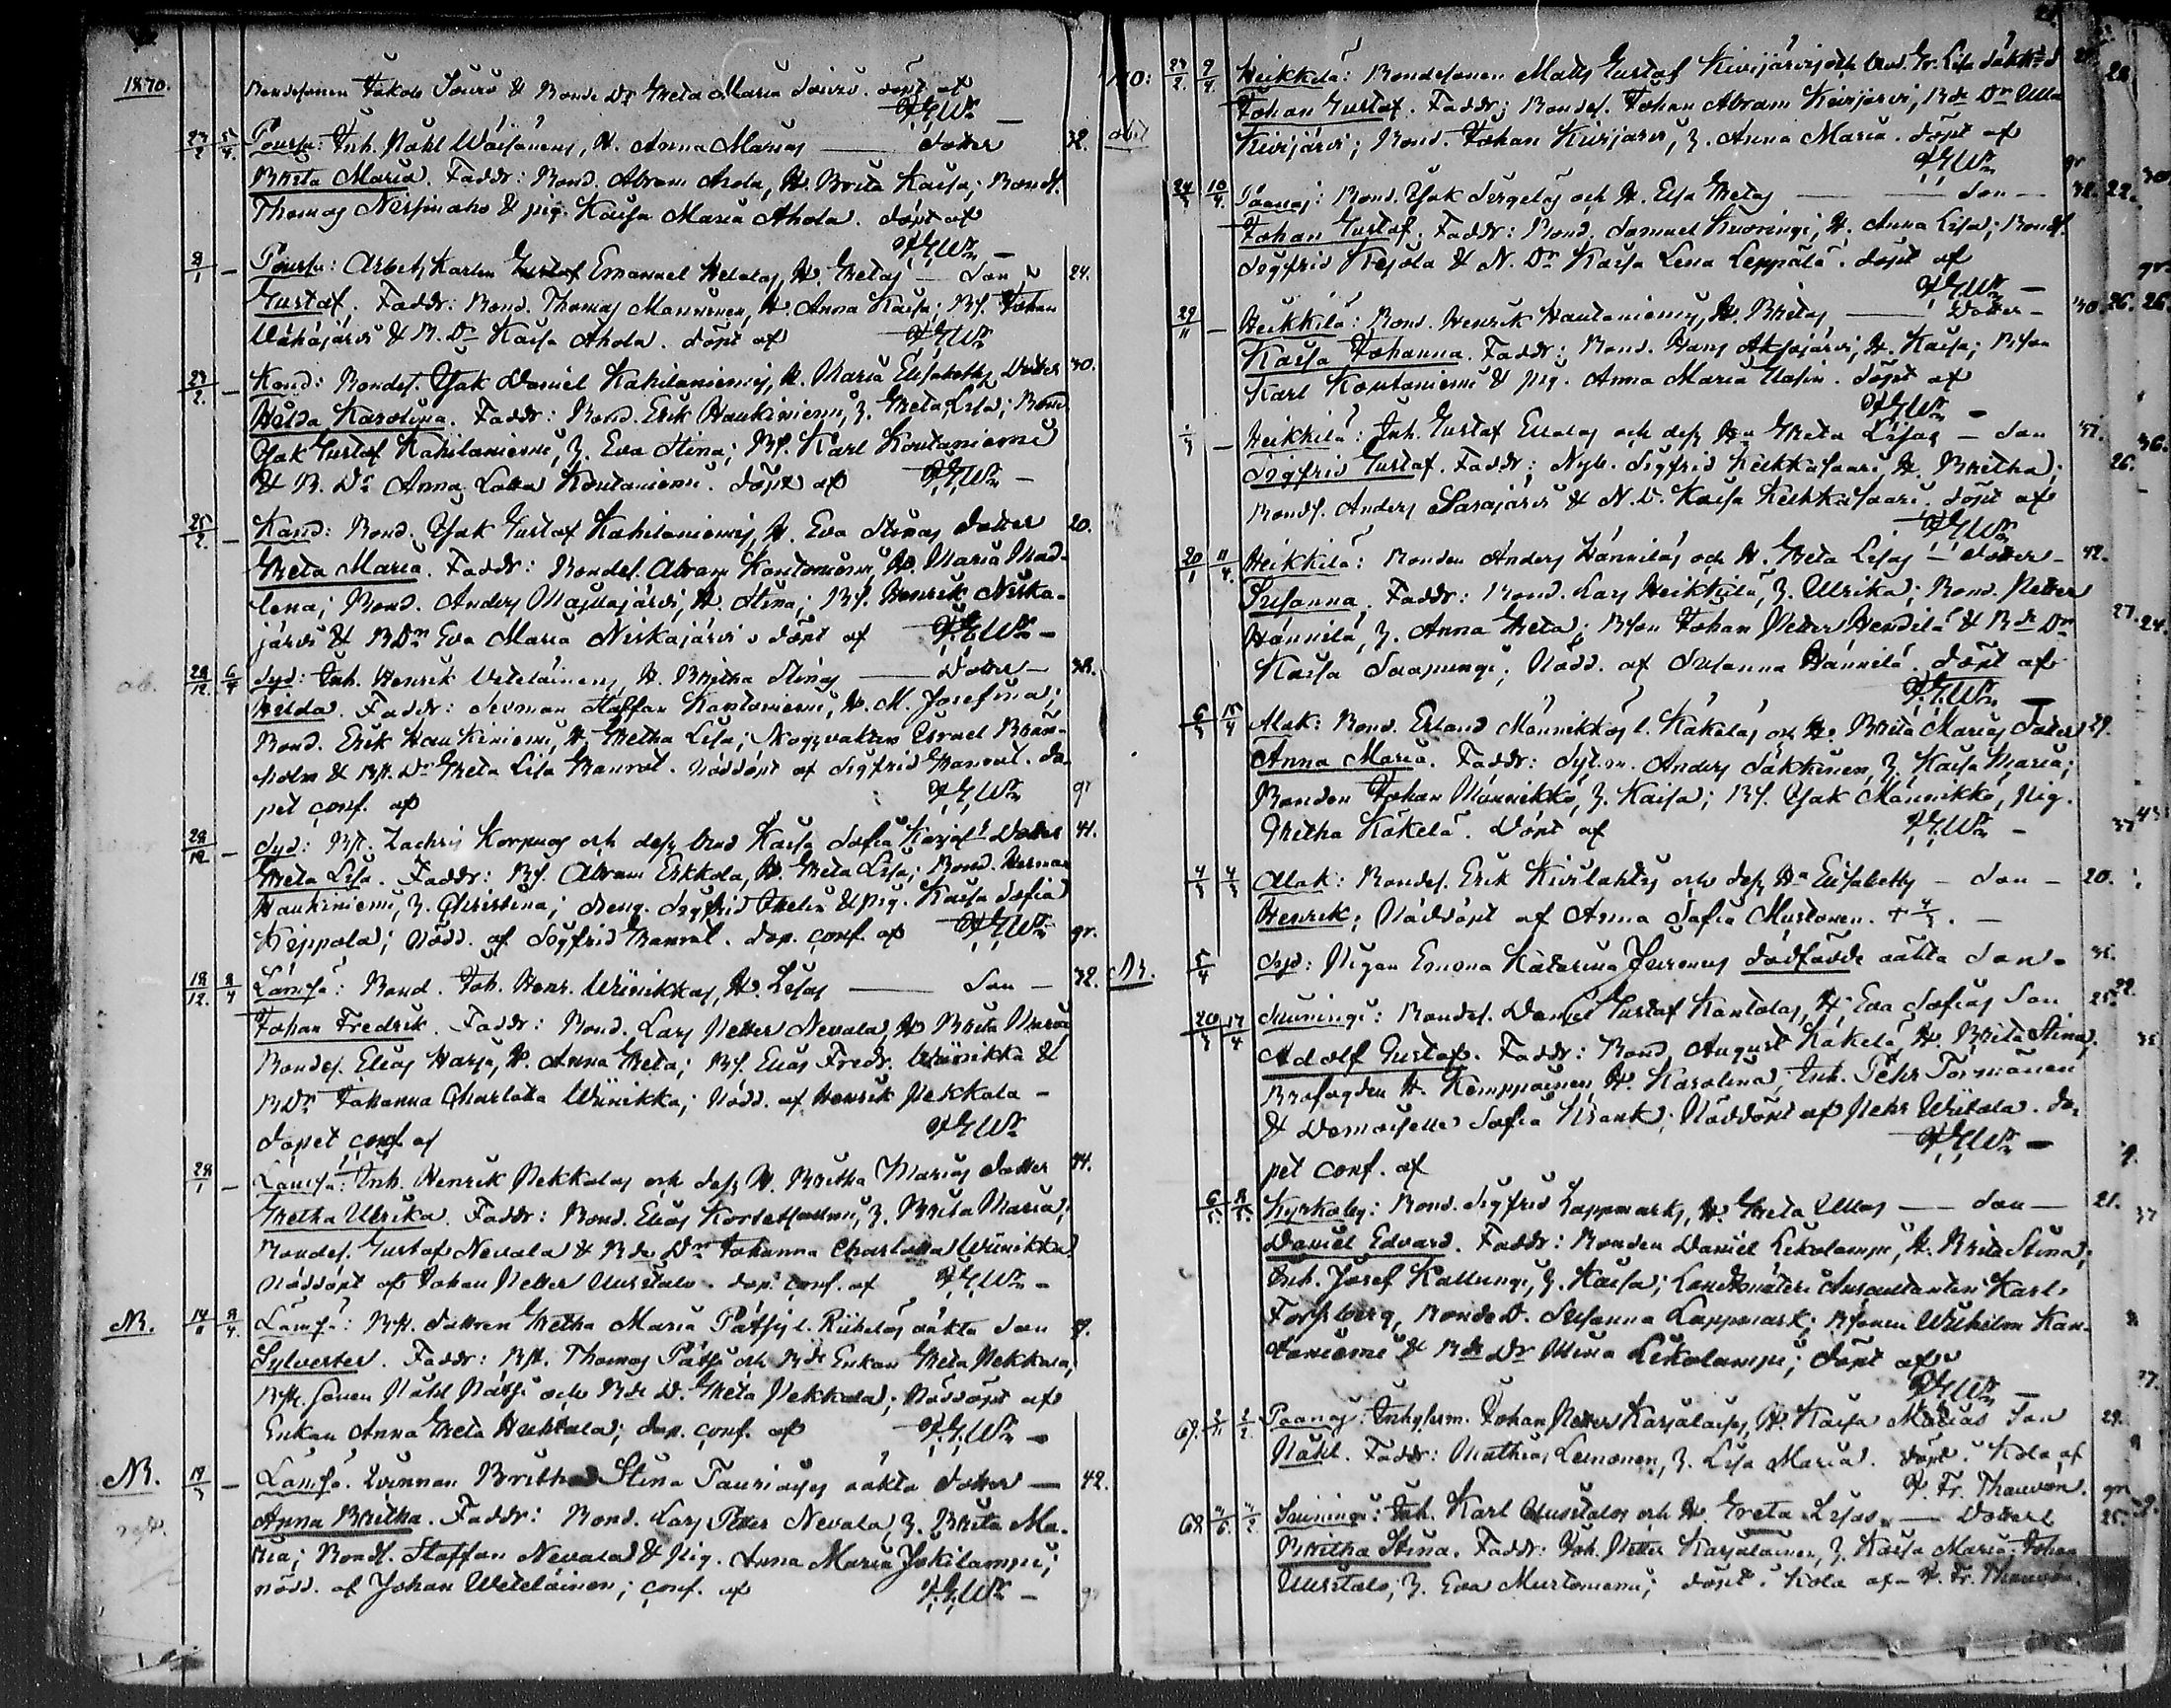 1870.
Bondesonen Jakob Souro & Bonde Dr Greta Maria Souro. döpt af
23/2 5/4. Poussu: Inh. Påhl Wäisänens, H. Anna Marias — dotter 32.
Brita Maria. Faddr: Bond. Abram Ahola, H. Brita Kaisa; Bonds.
Thomas Nissinaho & pig. Kaisa Maria Ahola. döpt af
8/1 — Poussu: Arbets Karlen Emanuel Helalas, H. Gretas — Son 24.
Gustaf. Faddr: Bond. Thomas Manninen, H. Anna Kaisa; Bs. Johan
Wähäjärvi & B. Dr Kaisa Ahola. döpt af
23/2. — Kand: Bondes. Isak Daniel Kahilaniemis, H. Maria Elisabeths Dotter 30.
Hilda Karolina. Faddr: Bond. Erik Haukiniemi, H. Greta Lisa; Bond.
Isak Gustaf Kahilaniemi, H. Eva Stina; Bs. Karl Koutaniemi
& B. Dr Anna Lotta Koutaniemi. döpt af
25/2. — Kand: Bond. Isak Gustaf Kahilaniemis, H. Eva Stinas dotter 20.
Greta Maria. Faddr: Bondes. Abram Kantoniemi, H. Maria Mad-
lena; Bond. Anders Majavajärvi, H. Stina; Bs. Henrik Niska-
järvi & B Dr Eva Maria Niskajärvi. döpt af
28/12. 6/4 Syd: Inh. Henrik Weteläinens, H. Britha Stinas — Dotter — 38.
Hilda. Faddr: Sexman Staffan Kantoniemi, H. M. Josefina;
Bond. Erik Haukiniemi, H. Gretha Lisa; Skogsvaktaren Israel Brän-
holm & Bst. Dr Greta Lisa Granrot. Nöddöpt af Sigfrid Granrot. dö-
pet conf. af gr
28/12. — Syd: Bst. Zachris Korpuas och dess Hust Kaisa Sofia Dotter 41.
Greta Lisa. Faddr: Bs. Abram Erkkola, H. Greta Lisa; Bond. Herman
Haukiniemi, H. Christina; dreng. Sigfrid & pig. Kaisa Sofia
Keppola; Nödd. af Sigfrid Granrot. döp. conf. af gr.
18/12. 8/4 Lämsä: Bond. Joh. Henr. Wiinikkas, H. Lisas — Son — 32.
Johan Fredrik. Faddr: Bond. Lars Petter Nevala, H. Brita Maria
Bondes. Elias Harju, H. Anna Greta; Bs. Elias Fredr. Wiinikka &
B Dr Johanna Charlotta Wiinikka; Nödd. af Henrik Pekkala —
döpet conf. af
28/1 — Lämsä: Inh. Henrik Pekkalas och dess H. Britha Marias dotter 44.
Gretha Ulrika. Faddr: Bond. Elias Kortetjärvi, H. Brita Maria;
Bondes. Gustaf Nevala & Bde Dr Johanna Charlotta Wiinikka
Nöddöpt af Johan Petter Uusitalo. döp. conf. af
NB. 14/1 8/4. Lämsä: Bst. dottren Gretha Maria Pätsis l. Riihelas oäkta Son
Sylvester. Faddr: Bst. Thomas Pätsi och Bde Enkan Greta Pekkala,
Bst. sonen Påhl Pätsi och Bde D. Greta Pekkala; Nöddöpt af
Enkan Anna Greta Huhtala; döp. conf. af
NB. 19/3 — Lämsä. Qvinnan Britha Stina Tauriaises oäkta dotter — 42.
Anna Britha. Faddr: Bond. Lars Petter Nevala, H. Brita Ma-
ria; Bonds. Staffan Nevala & Pig. Anna Maria Jokilampi;
nödd. af Johan Weteläinen; conf. af
23/2. 9/4. Heikkilä: Bondesonen Matts Gustaf Kivijärvis
Johan Gustaf. Faddr; Bondes. Johan Abram Kivijärvi, Bde Dr Ulla
Kivijärvi; Bond. Johan Kivijärvi, H. Anna Maria. döpt af
24/3 10/4. Paanaj: Bond. Isak Sirgeläs och H. Elsa Gretas — Son — 32.
Johan Gustaf. Faddr: Bond. Samuel Kuoringi, H. Anna Lisa; Bonds.
Sigfrid Kesola & N. Dr Kaisa Lena Leppälä. döpt af
29/11 — Heikkilä: Bond. Henrik Hautaniemis, H. Britas — Dotter — 40.
Kaisa Johanna. Faddr: Bond. Hans Aksajärvi, H. Kaisa; Bson
Karl Koutaniemi & pig. Anna Maria Ulasin. döpt af
1/3 — Heikkilä: Inh. Gustaf Erkolas och dess Hu Greta Lisas — Son 37.
Sigfrid Gustaf. Faddr; Nyb. Sigfrid Kiikkasaari, H. Britha;
Bonds. Anders Sarajärvi & N. D. Kaisa Kiikkasaari. döpt af
20/1 11/4. Heikkilä: Bonden Anders Hänniläs och H. Greta Lisas — dotter — 42.
Susanna. Faddr: Bond. Lars Heikkilä, H. Ulrika; Bond. Petter
Hännilä, H. Anna Greta; Bson Johan Petter Hendilä & Bde Dr
Kaisa Saapungi; Nödd. af Susanna Hännilä. döpt af
6/3 15/4 Alak: Bond. Erland Männikkös l. Käkeläs och H. Brita Marias Dotter 29.
Anna Maria. Faddr: Syt.m. Anders Säkkinen, H. Kaisa Maria;
Bonden Johan Männikkö, H. Kaisa; Bs. Isak Männikkö, Pig.
Gretha Käkelä. Döpt af
4/3 4/3 Alak: Bondes. Erik Kivilahtis och dess Ha Elisabeths — Son — 20.
Henrik; Nöddöpt af Anna Sofia Mustonen. + 4/3. —
NB. 5/4 Syd: Pigan Emma Katarina Jurvas dödfödde oäkta Son.
20/3 17/4 Suiningi: Bondes. Daniel Gustaf Kantolas, H Eva Sofias Son 25.
Adolf Gustaf. Faddr: Bond. August Käkelä, H. Brita Stina;
Brofogden H. Kemppainen, H. Karolina, Inh. Pehr Törmänen
& Demoiselle Sofia Krank; Nöddöpt af Pehr Wiitala. dö-
pet conf. af
6/5. 8/5. Kyrkoby: Bond. Sigfrid Lappmarks, H. Greta Ullas — Son — 21.
Daniel Edvard. Faddr: Bonden Daniel Kekolampi, H. Brita Stina;
Inh. Josef Kallungi, H. Kaisa; Landtmäteri Auscultanten Karl
Forssberg, Bonde D. Susanna Lappmark; Bsonen Wilhelm Kan-
toniemi & Bde Dr Mina Kekolampi; döpt af
69. Paanaj: Inhysesm. Johan Petter Karjalaises, H. Kaisa Marias Son 29.
Påhl. Faddr: Mathias Leinonen, H. Lisa Maria. döpt i Kola af
H. Fr. Thauvon.
68 Suiningi: Inh. Karl Uusitalos och H. Greta Lisas — Dotter 25.
Britha Stina. Faddr: Inh. Petter Karjalainen, H. Kaisa Maria; Johan
Uusitalo, H. Eva Murtoniemi; döpt i Kola af H. Fr. Thauvon.